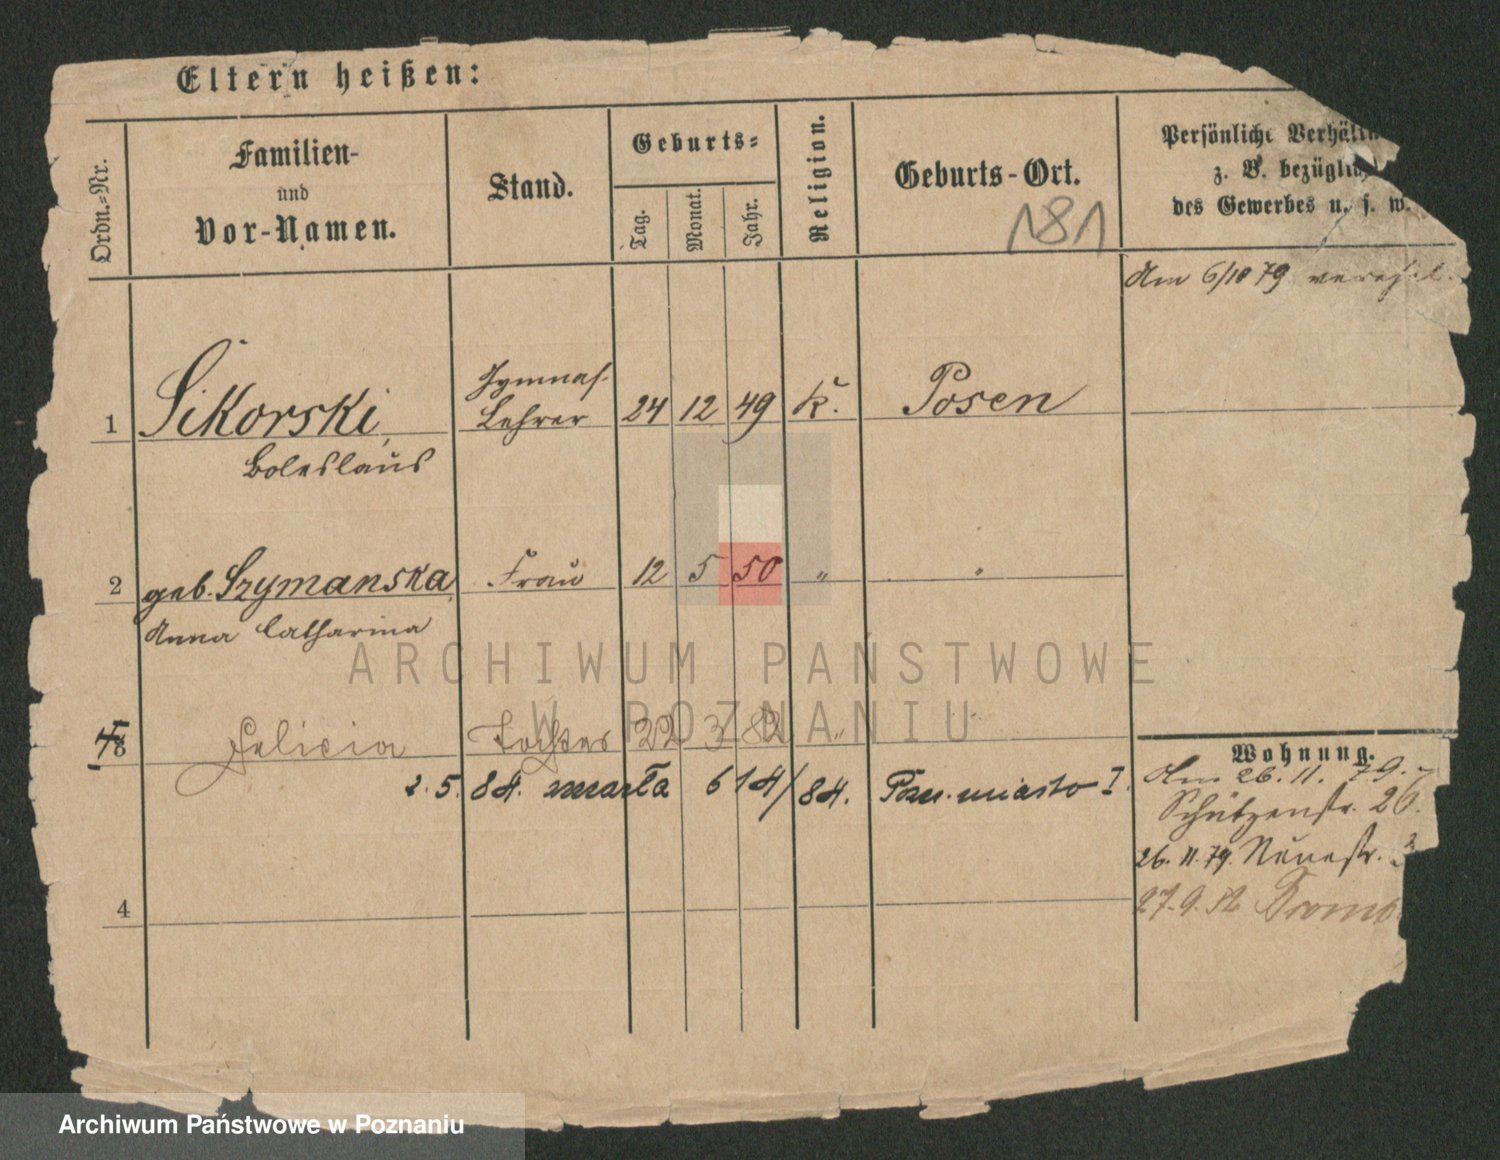 Eltern heißen:
Ordn.-Nr.
Familien-
und
Vor-Namen.
Stand.
Geburts-
Tag.
Monat.
Jahr.
Religion.
Geburts-Ort.
181
Persönliche
z. B.
des Gewerbes u. s. w.
Am 6/10 79
1 Sikorski, Gymnas. Lehrer 24 12 49 k. Posen
Boleslaus
2 geb. Szymanska, Frau 12 5 50 " "
Anna Catharina
Felicia Tochter 22 3 82 "
2.5.84. zmarła 6 14/84. Pozn. miasto I.
4
Wohnung.
Am 26.11.79.
Schützenstr. 26.
26.11.79. Neuestr.
27.9.82
ARCHIWUM PAŃSTWOWE
W POZNANIU
Archiwum Państwowe w Poznaniu